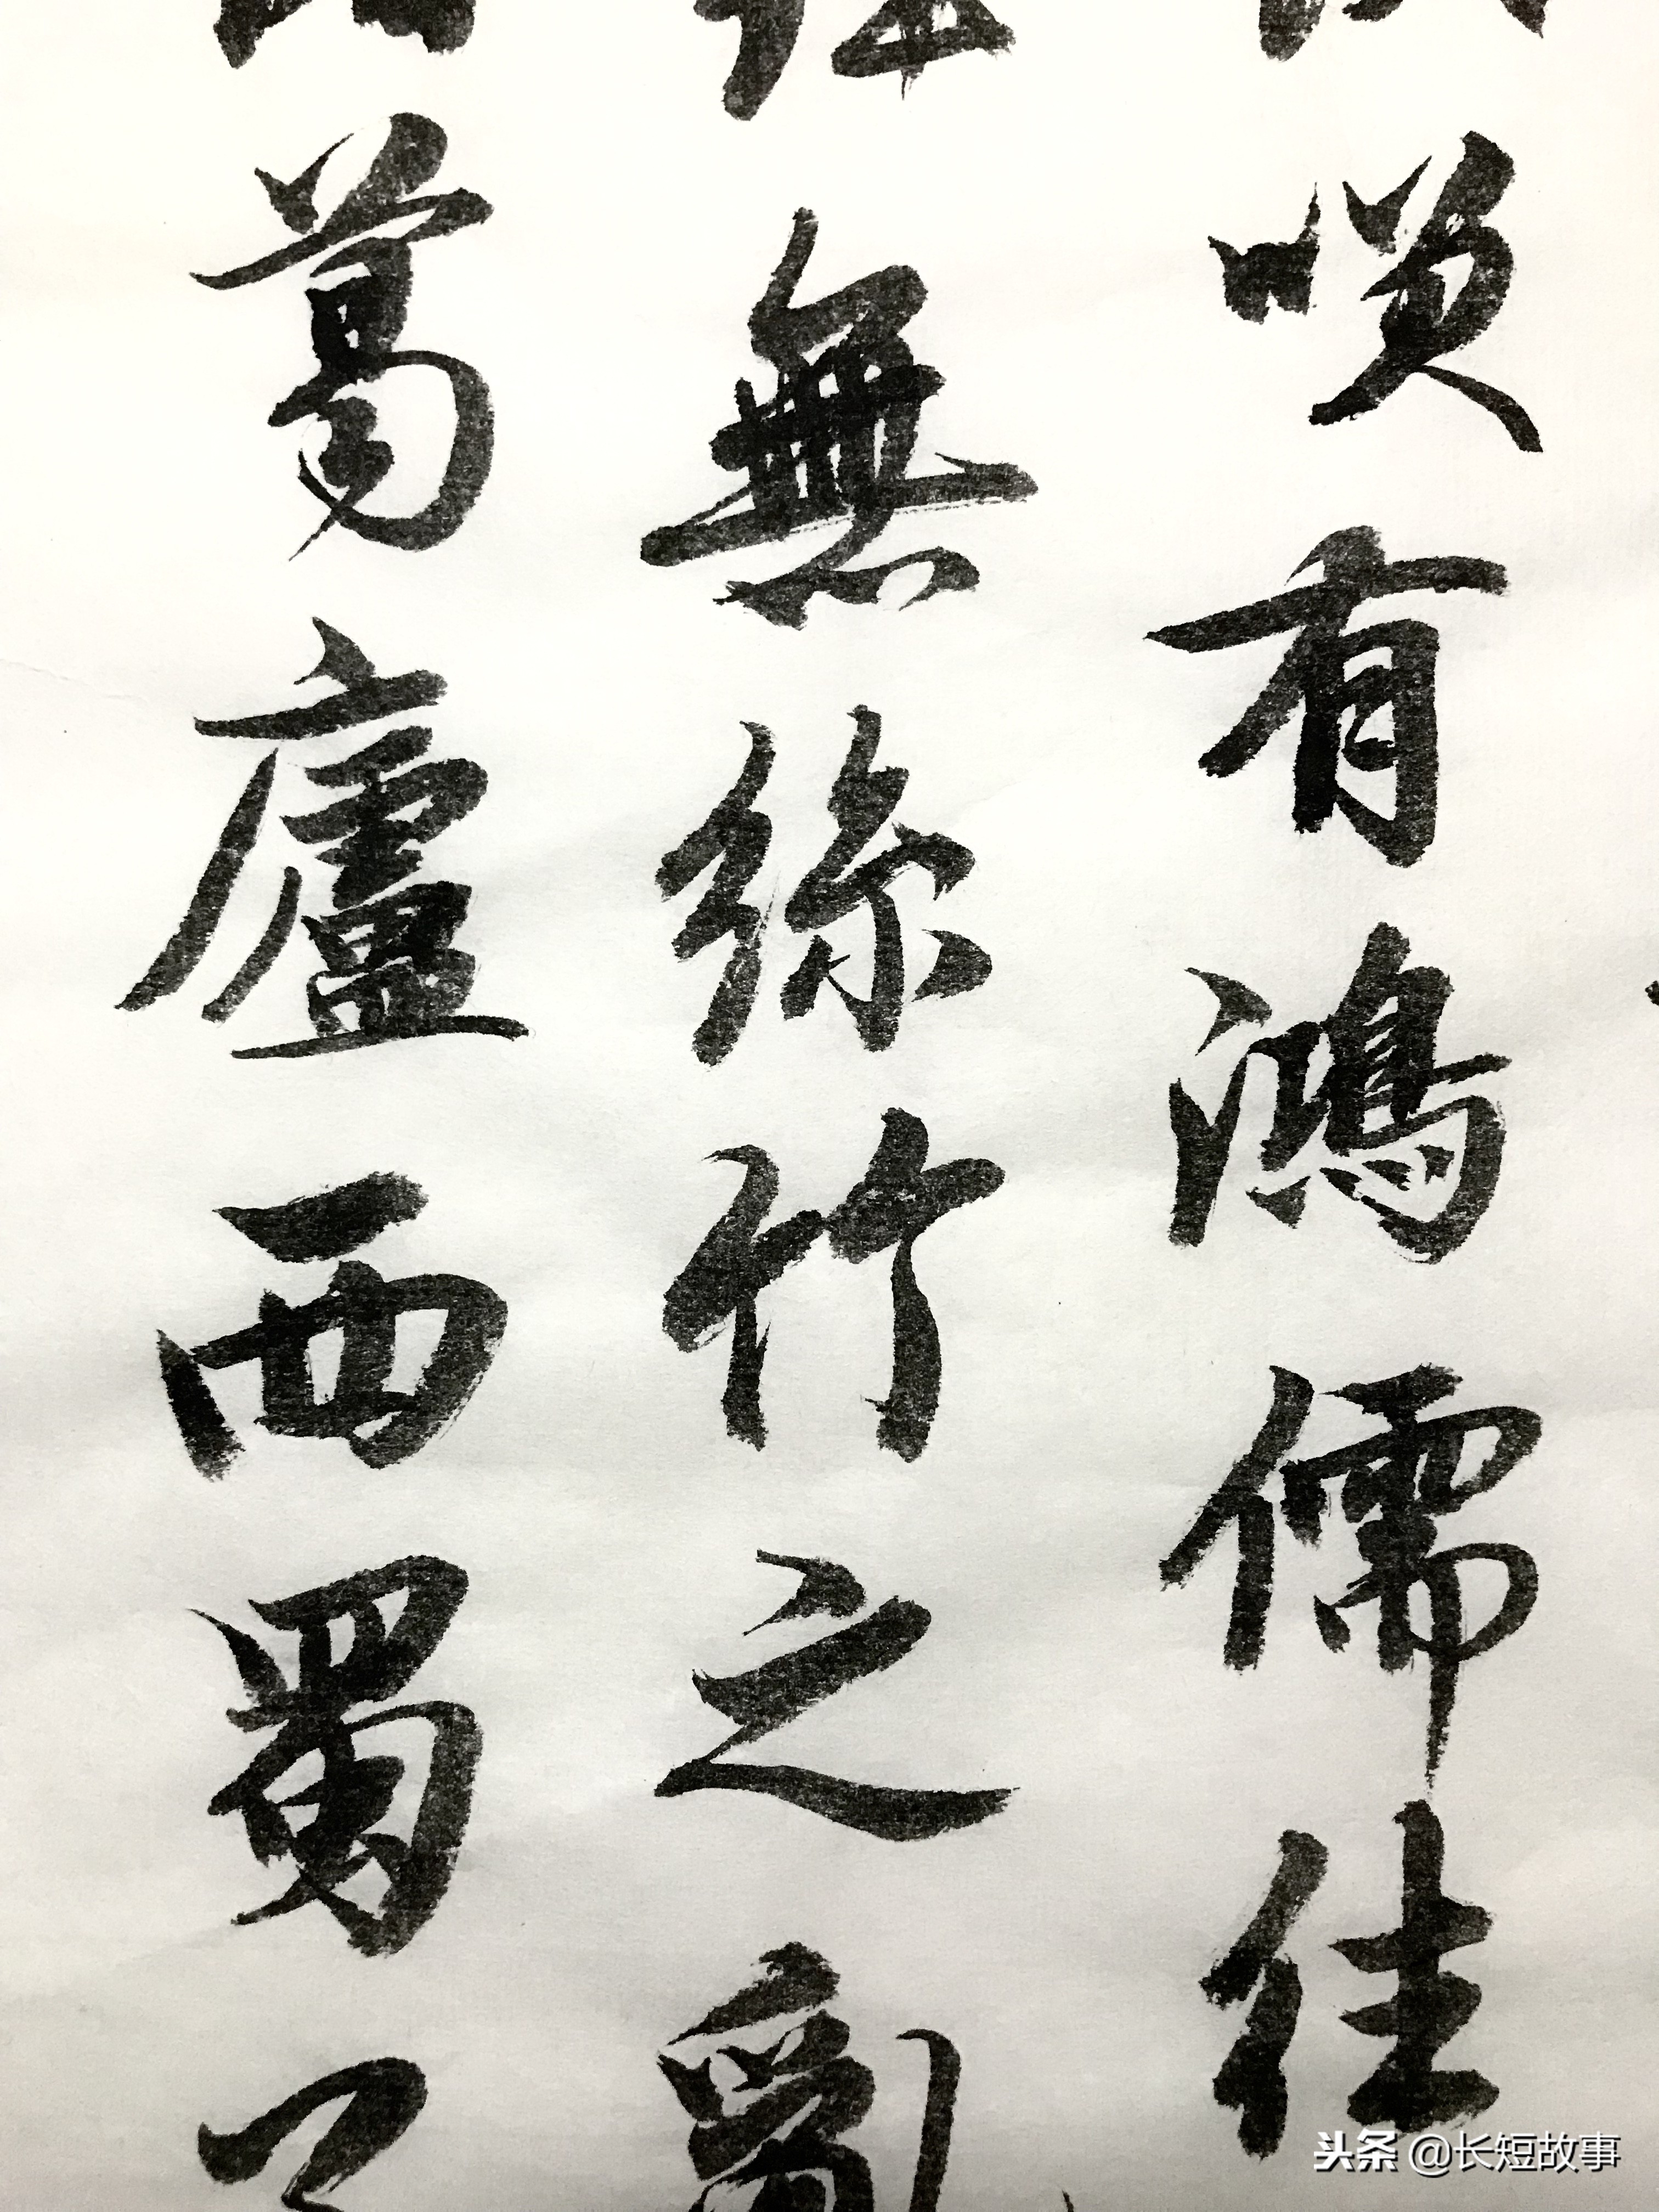 咲有鴻儒往
無絲竹之亂
葛廬西蜀
头条 @长短故事